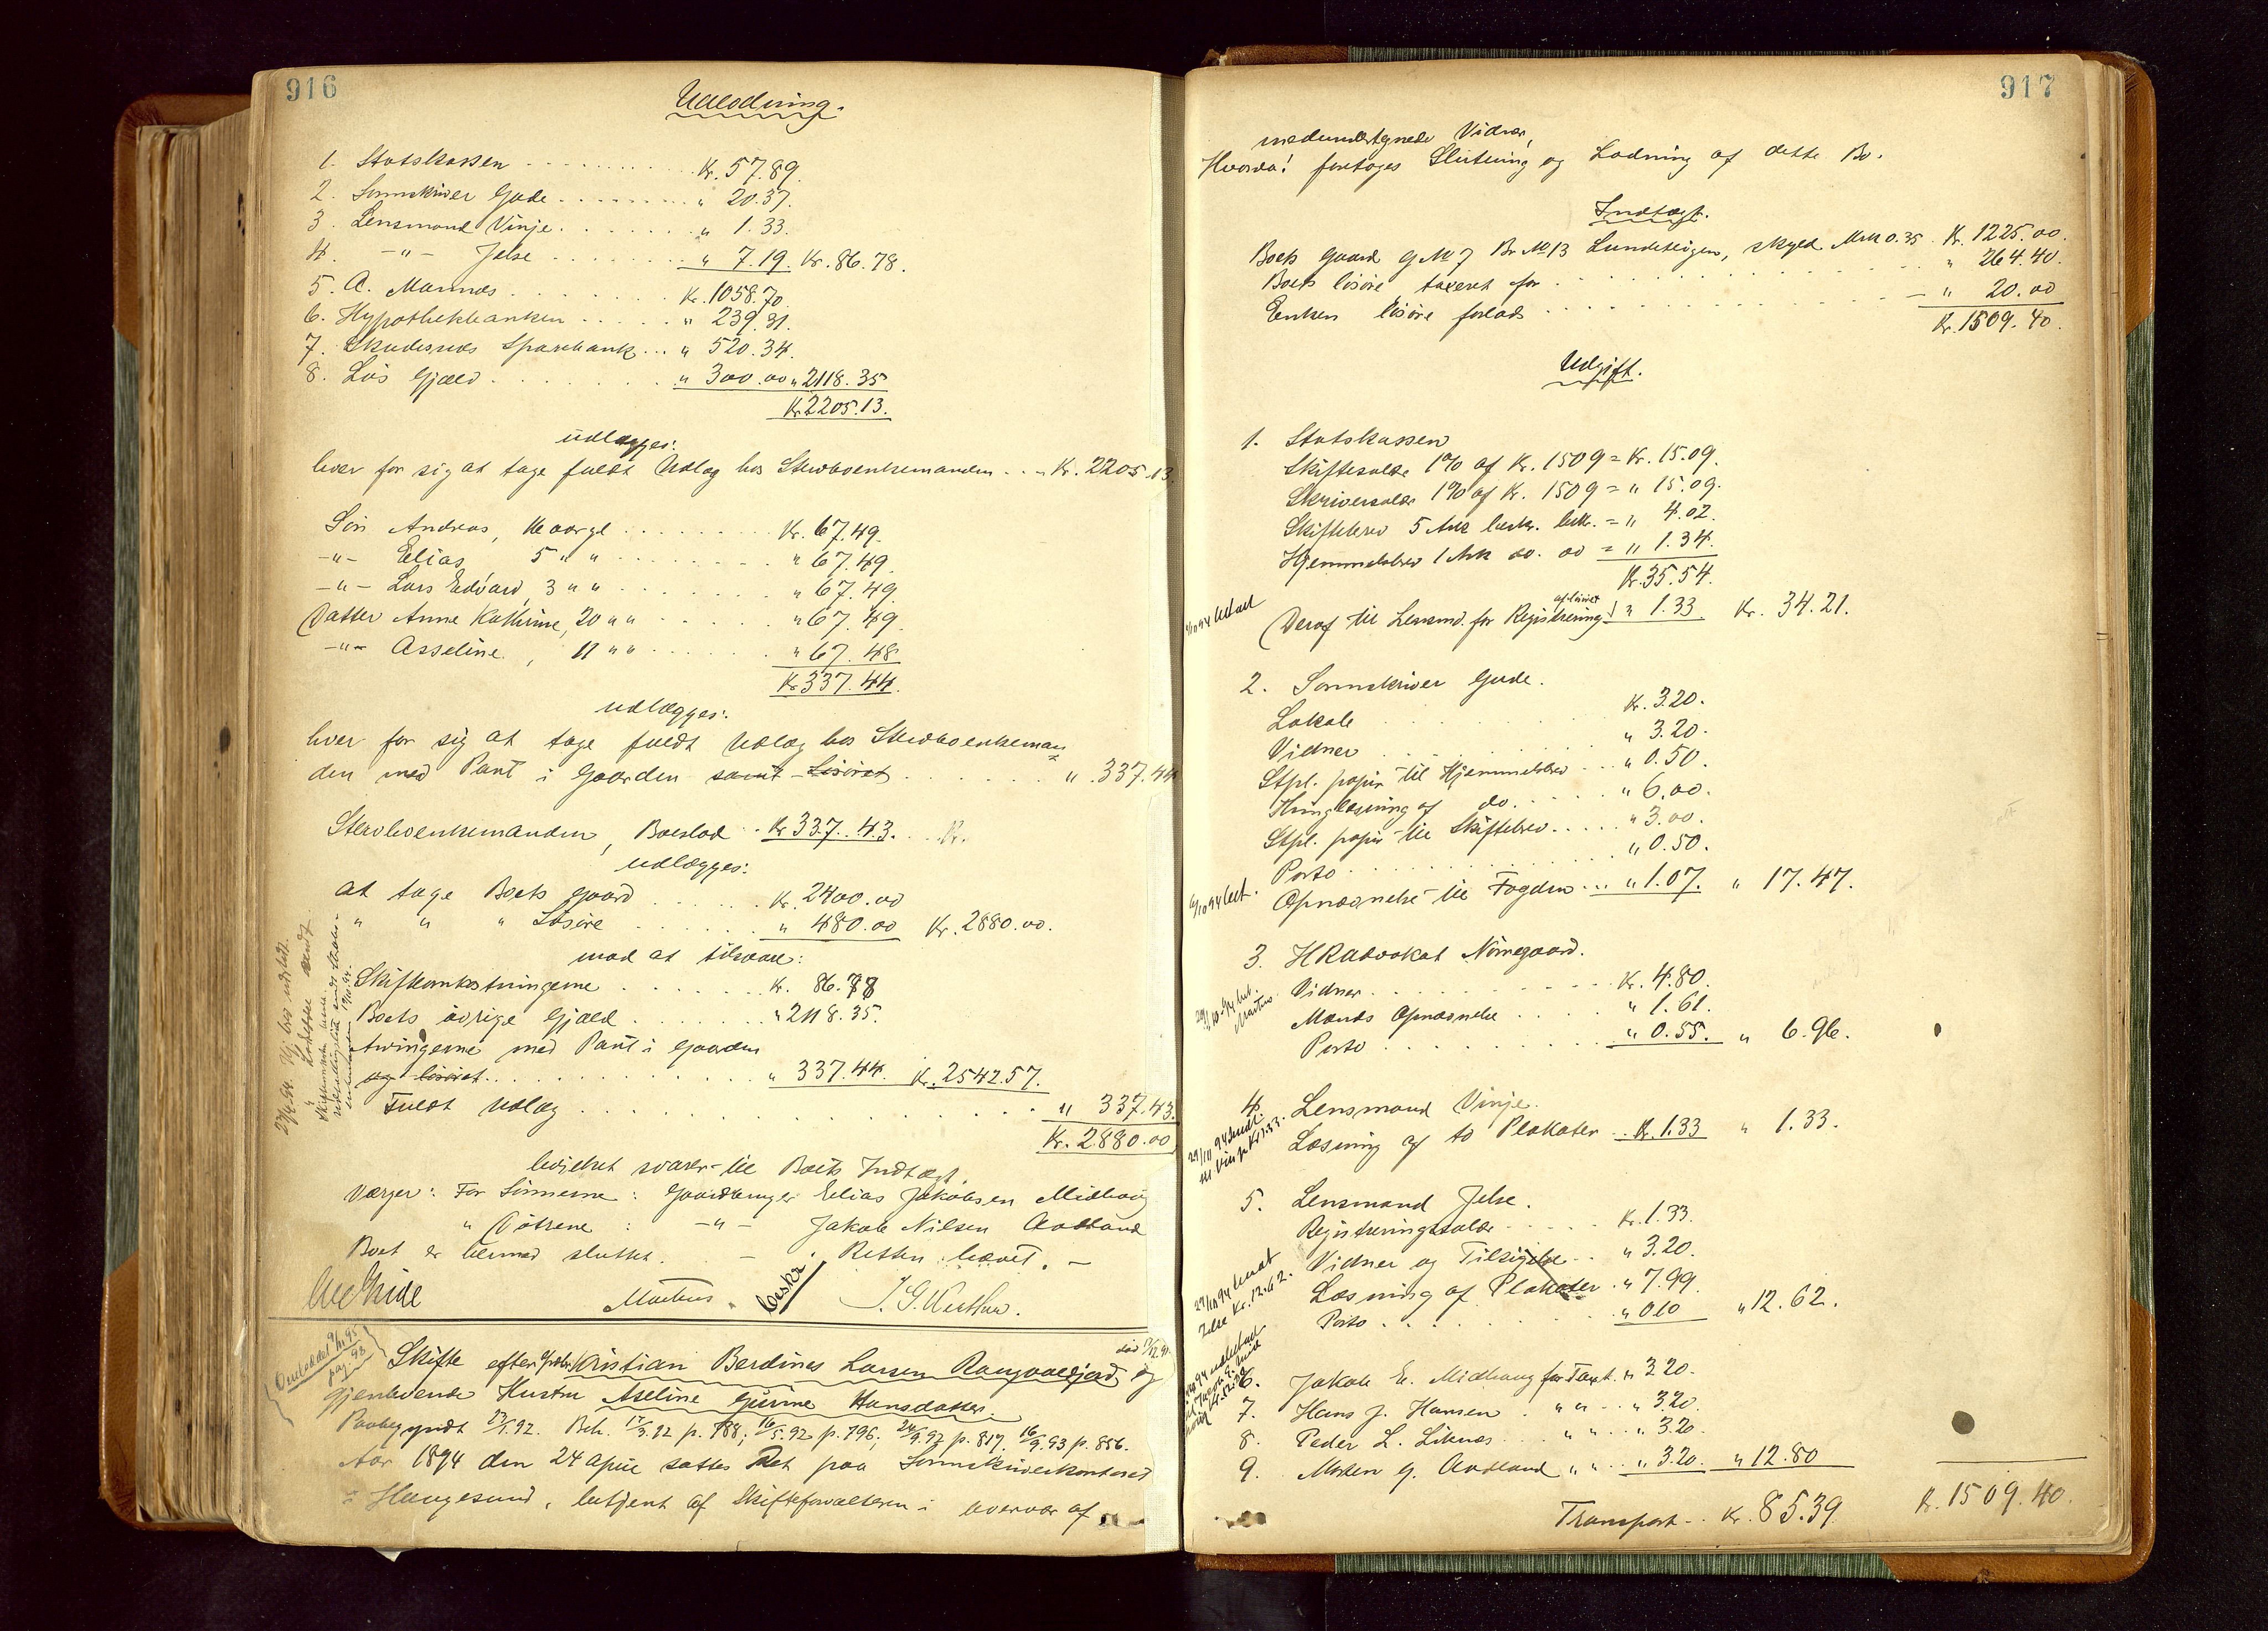 916
Udlodning.
1. Statskassen . . . . Kr. 57.89.
2. Sorenskriver Gade . . . . " 20.37.
3. Lensmand Vinje . . . . " 1.33.
4. -"- Jelse . . . . " 7.19. Kr. 86.78.
5. A. Mannes . . . . Kr. 1058.70.
6. Hypothekbanken . . . . " 239.31.
7. Skudesnes Sparebank . . . " 520.34.
8. Løs Gjæld . . . . " 300.00 " 2118.35
Kr. 2205.13.
udlægges:
hver for sig at tage fuldt Udlæg hos Stervboenkemanden . . Kr. 2205.13.
Søn Andreas, 16 aar gl . . . . Kr. 67.49.
-"- Elias 5 " " . . . . " 67.49.
-"- Lars Edvard, 3 " " . . . . " 67.49.
Datter Anne Kathrine, 20 " " . . . . " 67.49.
-"- Asseline, 11 " " . . . . " 67.48
Kr. 337.44.
udlægges:
hver for sig at tage fuldt Udlæg hos Stervboenkeman
den med Pant i Gaarden samt Løsøret . . . . " 337.44
Stervboenkemanden, Boeslod . . Kr 337.43. . . Kr.
udlægges:
at tage Boets gaard . . . . Kr. 2400.00
" " " Løsøre . . . . " 480.00 Kr. 2880.00.
mod at tilsvare:
Skifteomkostningerne . . . . Kr. 86.78
Boets øvrige Gjæld . . . . " 2118.35.
Arvingerne med Pant i Gaarden
og løsøret . . . . " 337.44. Kr. 2542.57.
Fuldt Udlæg . . . . " 337.43.
Kr. 2880.00
hvilket svarer til Boets Indtægt.
Værger: For Sønnerne: Gaardbruger Elias Jakobsen Midhaug
" Døtrene : -"- Jakob Nilsen Aadland
Boet er hermed sluttet. — Retten hævet. —
Mæhus.
Omloddet 9/11.95
pag. 98
Skifte efter Kristian Berdines Larsen Rangvaldjord og
gjenlevende Hustru Aseline Gurine Hansdatter.
Paabegyndt 23/1.92. Beh. 17/3.92 p. 788; 16/5.92 p. 796; 24/9.92 p. 817. 16/9.93 p. 856.
Aar 1894 den 24 April sattes Ret paa Sorenskriverkontoret
i Haugesund, betjent af Skifteforvalteren i overvær af
917
medundertegnede Vidner,
Hvorda! foretoges Slutning og Lodning af dette Bo.
Indtægt.
Boets Gaard G No 7 Br No 13 Lundeteigen, skyld Mrk 0.35 Kr. 1225.00.
Boets løsøre taxeret for . . . . " 264.40.
Enken løsøre forlods . . . . " 20.00
Kr. 1509.40.
Udgift.
1. Statskassen
Skiftesalær 1% af Kr. 1509 = Kr. 15.09.
Skriversalær 1% af Kr. 1509 = " 15.09.
Skiftebrev 5 Ark beskr. bekr. = " 4.02.
Hjemmelsbrev 1 Ark do. do = " 1.34.
Kr. 35.54.
Deraf til Lensmd. for Registrering af løsøret " 1.33 Kr. 34.21.
2. Sorenskriver Gade.
Lokale . . . . Kr. 3.20.
Vidner . . . . " 3.20.
Stpl. papir til Hjemmelsbrev . . . " 0.50.
Thinglæsning af do. . . . " 6.00.
Stpl. papir til Skiftebrev . . . . " 3.00.
Porto . . . . " 0.50.
Opnævnelse til Fogden . . . " 1.07. " 17.47.
3. HRadvokat Nørregaard.
Vidner . . . . Kr. 4.80.
Mænds Opnævnelse . . . . " 1.61.
Porto . . . . " 0.55. " 6.96.
4. Lensmand Vinje.
Læsning af to Plakater . . Kr. 1.33 " 1.33.
5. Lensmand Jelse.
Registreringssalær . . . . Kr. 1.33.
Vidner og Tilsigelse . . " 3.20.
Læsning af Plakater . " 7.99.
Porto . . . . " 0.10 " 12.62.
6. Jakob E. Midhaug for Taxt. " 3.20.
7. Hans J. Hansen . " " . . " 3.20.
8. Peder L. Liknes . . " " . . " 3.20
9. Morten G. Aadland " " . . " 3.20. " 12.80
Transport . . Kr. 85.39 Kr. 1509.40.